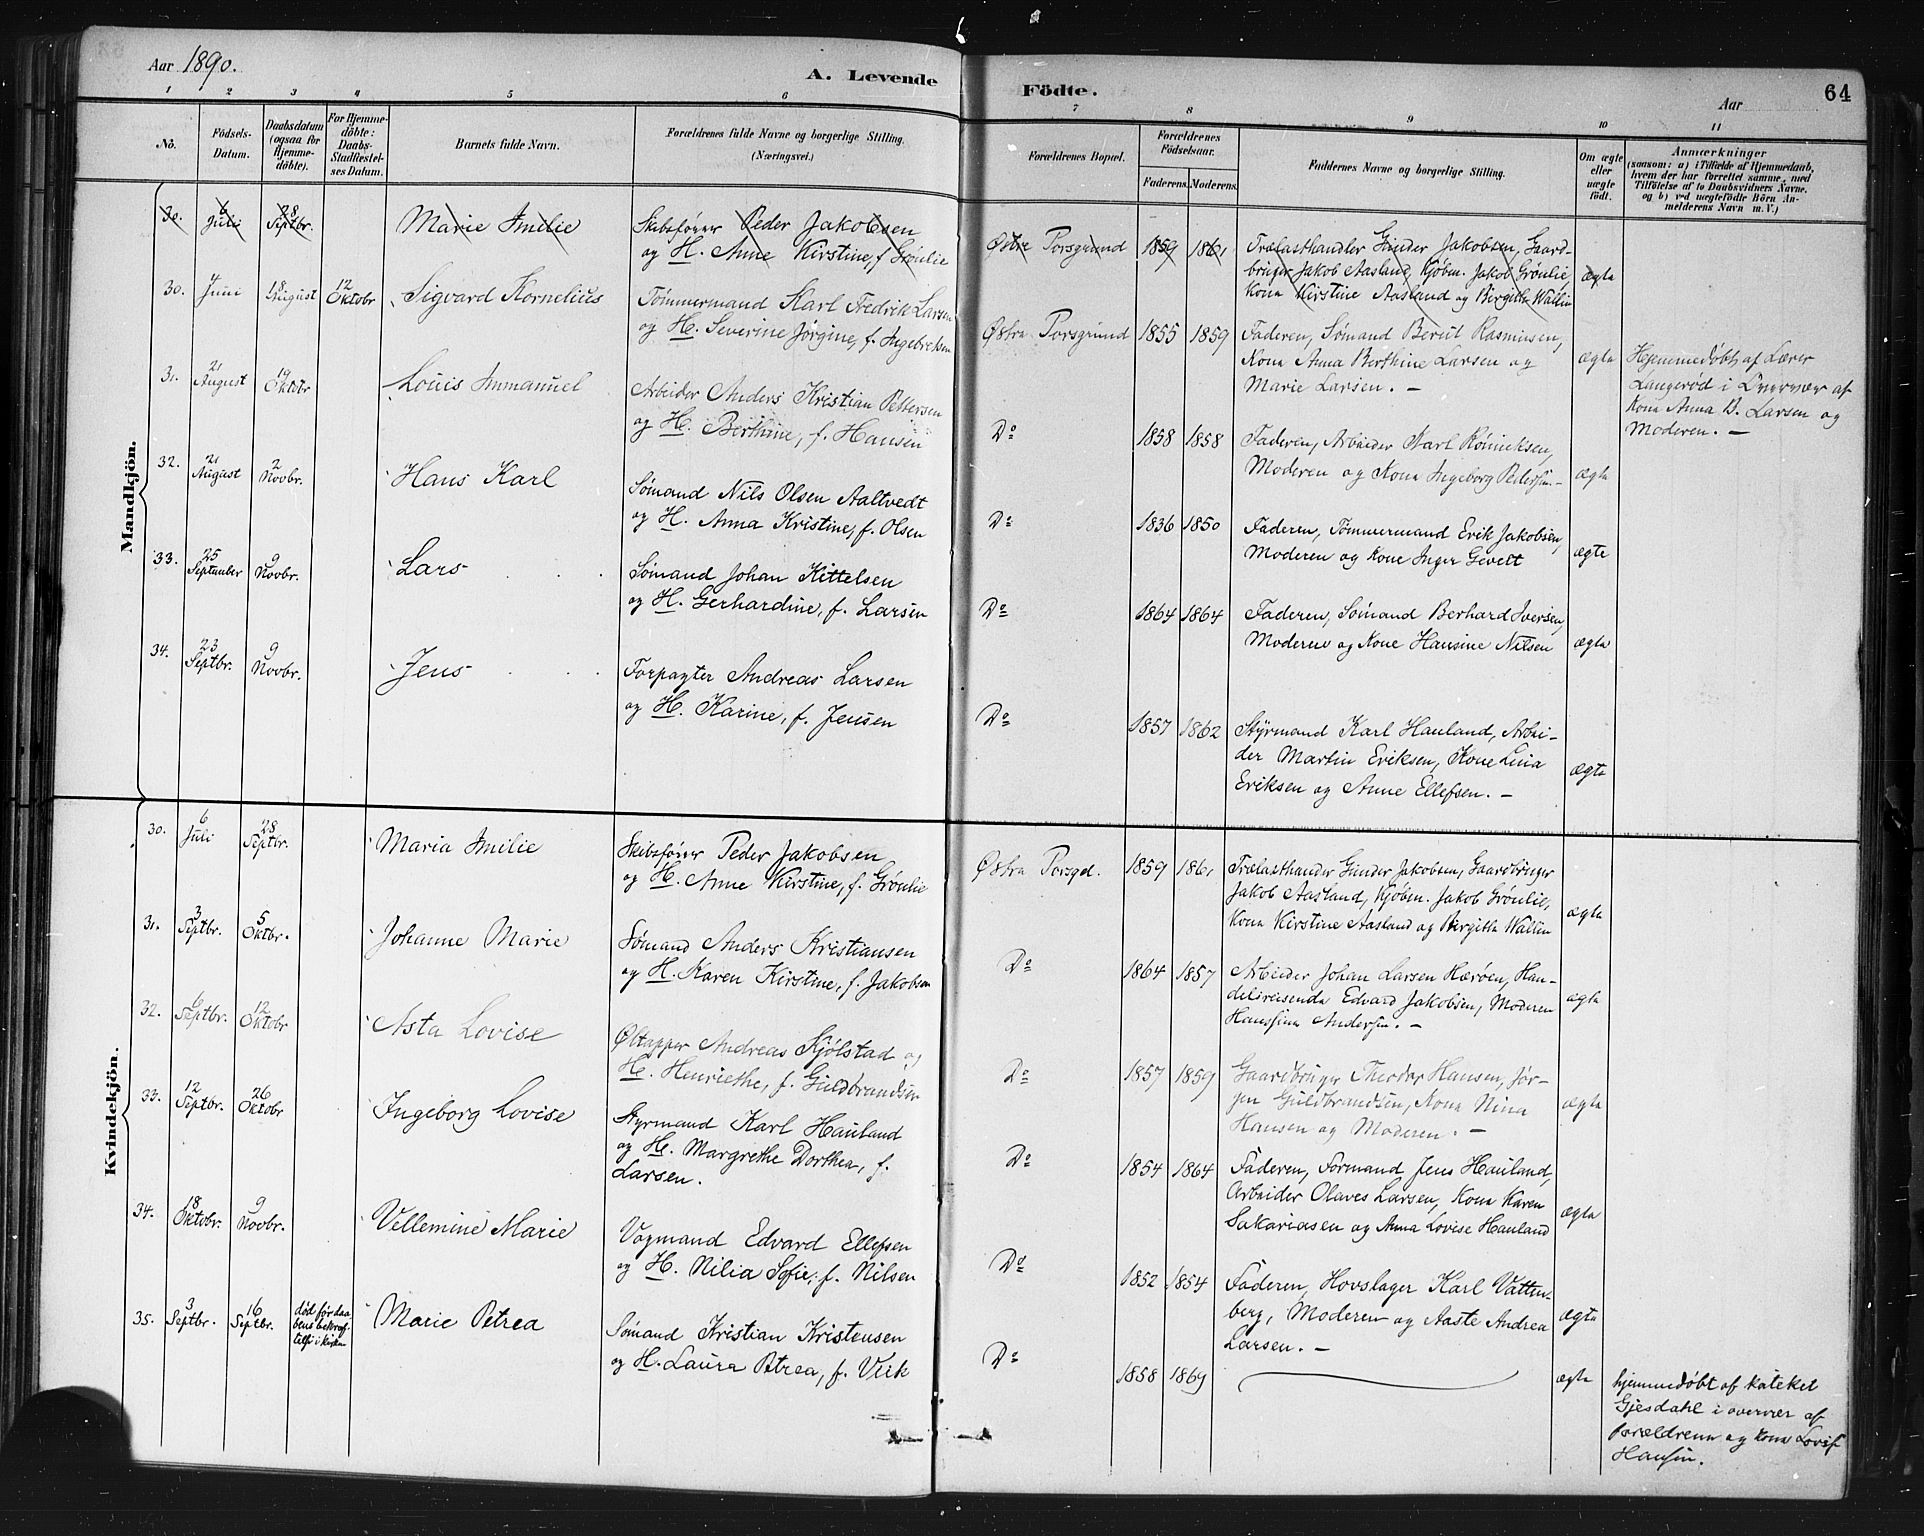 Aar 1890.
A. Levende
Födte.
Aar
64
1 2 3 4 5 6 7 8 9 10 11
No.
Födsels-
Datum.
Daabsdatum
(ogsaa for
Hjemme-
döbte).
For Hjemme-
döbte:
Daabs-
Stadfæstel-
ses Datum.
Barnets fulde Navn.
Forældrenes fulde Navne og borgerlige Stilling.
(Næringsvei.)
Forældrenes Bopæl.
Forældrenes
Födselsaar.
Faderens. Moderens.
Faddernes Navne og borgerlige Stilling.
Om ægte
eller
uægte
födt.
Anmærkninger
(saasom: a) i Tilfælde af Hjemmedaab,
hvem der har forrettet samme, med
Tilföielse af to Daabsvidners Navne.
og b) ved uægtefödte Börn An-
melderens Navn m. V.)
Mandkjön.
30. 6 Juli 28 Septbr. Marie Amilie
Skibsfører Peder Jakobsen
og H. Anne Kirstine, f. Grönlie
Østre Porsgrund 1859 1861
Trælasthandler Gunder Jakobsen, Gaard-
bruger Jakob Aasland, Kjøbm. Jakob Grönlie,
Kone Kirstine Aasland og Birgithe Wallin
ægte
30. Juni 18 August 12 Oktobr Sigvard Kornelius
Tömmermand Karl Fredrik Larsen
og H. Severine Jørgine, f. Ingebretsen
Østre Porsgrund 1855 1859
Faderen, Sømand Berut Rasmusen,
Kone Anna Berthine Larsen og
Marie Larsen. —
ægte
Hjemmedøbt af Lærer
Langerød i Overvær af
Kone Anna B. Larsen og
Moderen. —
31. 21 August 19 Oktbr Louis Immanuel
Arbeider Anders Kristian Pettersen
og H. Berthine, f. Hansen
Do 1858 1858
Faderen, Arbeider Karl Rönneksen,
Moderen og Kone Ingeborg Pedersen. —
ægte
32. 21 August 2 Novbr. Hans Karl
Sømand Nils Olsen Aaltvedt
og H. Anna Kristine, f. Olsen
Do 1836 1850
Faderen, Tømmermand Erik Jakobsen,
Moderen og Kone Inger Gevelt
ægte
33. 25 September 9 Novbr. Lars
Sømand Johan Kittelsen
og H. Gerhardine, f. Larsen
Do 1864 1864
Faderen, Sømand Berhard Iversen,
Moderen og Kone Hansine Nilsen
ægte
34. 23 Septbr. 9 Novbr. Jens
Forpagter Andreas Larsen
og H. Karine, f. Jensen
Do 1857 1862
Styrmand Karl Hauland, Arbei-
der Martin Eriksen, Kone Lina
Eriksen og Anne Ellefsen. —
ægte
Kvindekjön.
30. 6 Juli 28 Septbr. Maria Amilie
Skibsfører Peder Jakobsen
og H. Anne Kirstine, f. Grönlie
Østre Porsgd. 1859 1861
Trælasthander Gunder Jakobsen, Gaardbruger
Jakob Aasland, Kjøbm. Jakob Grönlie,
Kone Kirstine Aasland og Birgithe Wallin
ægte
31. 3 Septbr. 5 Oktbr. Johanne Marie
Sømand Anders Kristiansen
og H. Karen Kirstine, f. Jakobsen
Do 1864 1857
Arbeider Johan Larsen Hærøen, Han-
delsreisende Edvard Jakobsen, Moderen
Hansine Andersen. —
ægte
32. 6 Septbr. 12 Oktobr Asta Lovise
Øltapper Andreas Kjølstad og
H. Henriethe, f. Guldbrandsen
Do 1857 1859
Gaardbruger Theodor Hansen, Jør-
gen Guldbrandsen, Kone Nina
Hansen og Moderen. —
ægte
33. 12 Septbr. 26 Oktobr Ingeborg Lovise
Styrmand Karl Hauland
og H. Margrethe Dorthea, f.
Larsen.
Do 1854 1864
Faderen, Formand Jens Hauland,
Arbeider Olaves Larsen, Kone Karen
Sakariasen og Anna Lovise Hauland
ægte
34. 18 Oktobr. 9 Novbr. Vellemine Marie
Vognmand Edvard Ellefsen
og H. Nilia Sofie, f. Nilsen
Do 1852 1854
Faderen, Hovslager Karl Vatten-
berg, Moderen og Aaste Andrea
Larsen. —
ægte
35. 3 Septbr. 16 Septbr. død før daa
bens bekræf
telse i kirken Marie Petrea
Sømand Kristian Kristensen
og H. Laura Petrea, f. Viik
Do 1858 1869
ægte
hjemmedøbt af kateket
Gjesdahl i overvær af
forældrene og kone Lovise
Hansen.